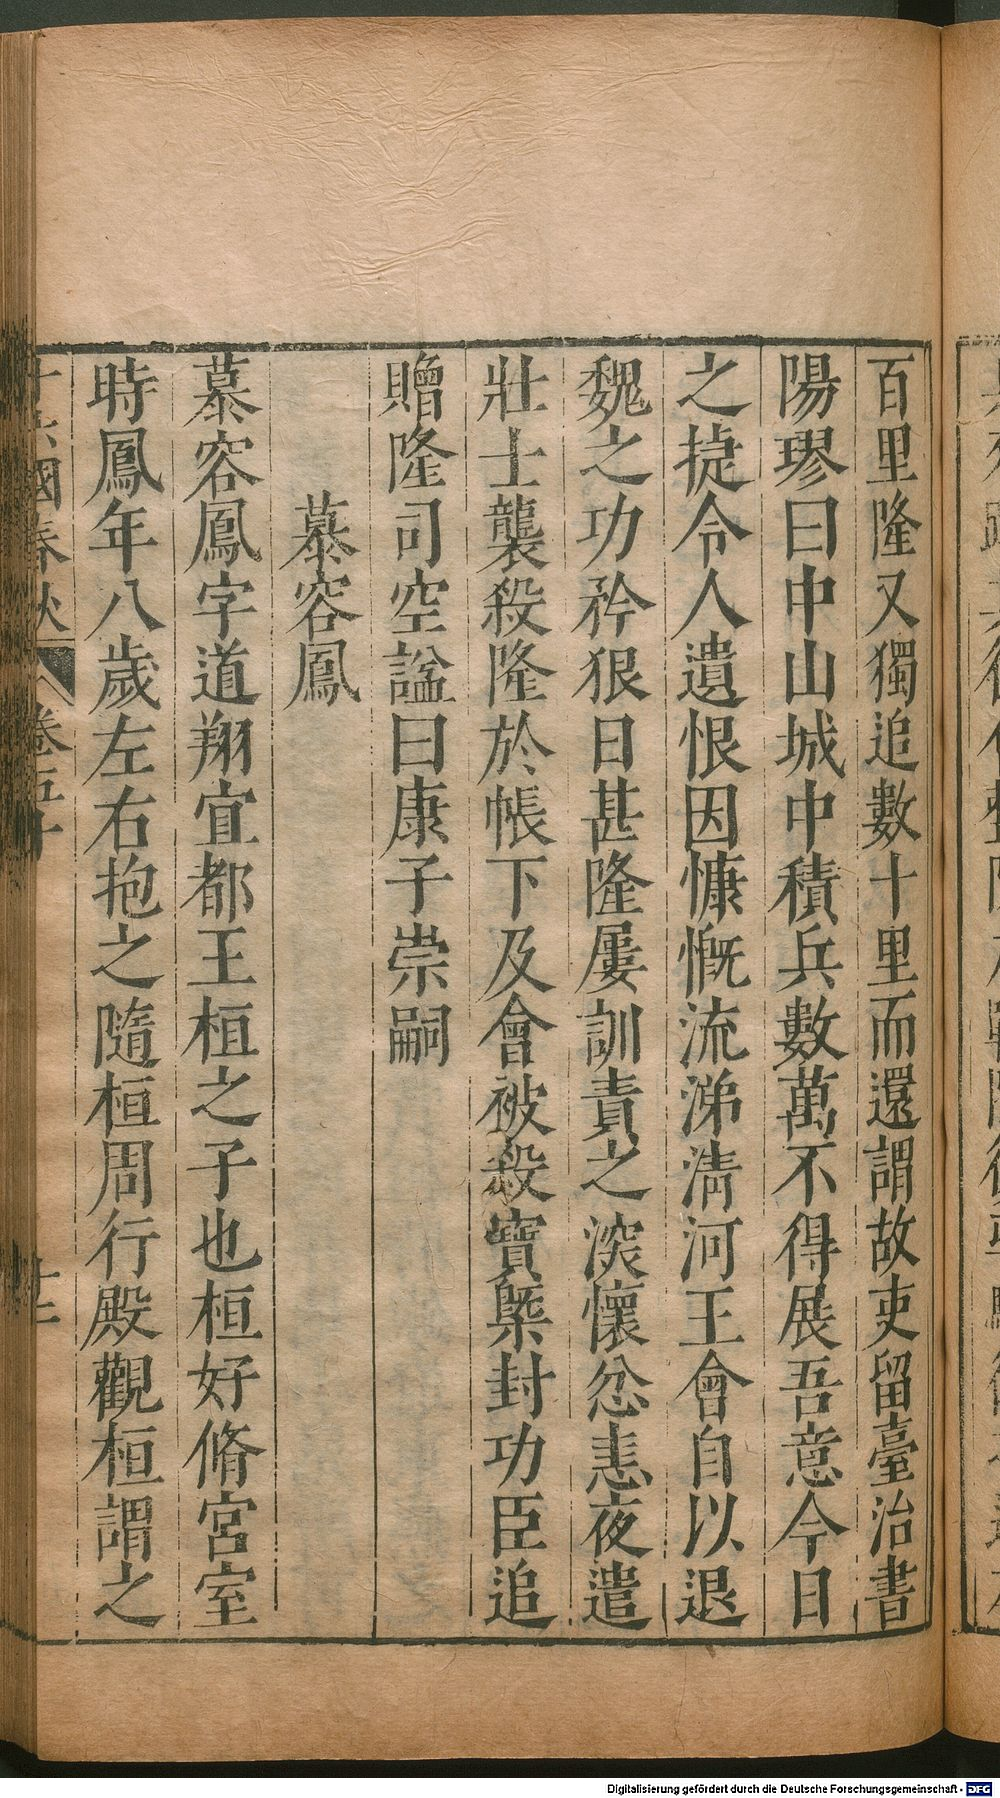 百里隆又獨追數十里而還謂故吏留臺治書
陽璆曰中山城中積兵數萬不得展吾意今日
之捷令人遺恨因慷慨流涕清河王會自以退
魏之功矜狠日甚隆屢訓責之㴱懷忿恚夜遣
壯士襲殺隆於帳下及會被殺寶㮣封功臣追
贈隆司空諡曰康子崇嗣
慕容鳳
慕容鳳字道翔宜都王桓之子也桓好脩宮室
時鳳年八歲左右抱之隨桓周行殿觀桓謂之
國春秋 卷五十 十二
Digitalisierung gefördert durch die Deutsche Forschungsgemeinschaft - DFG